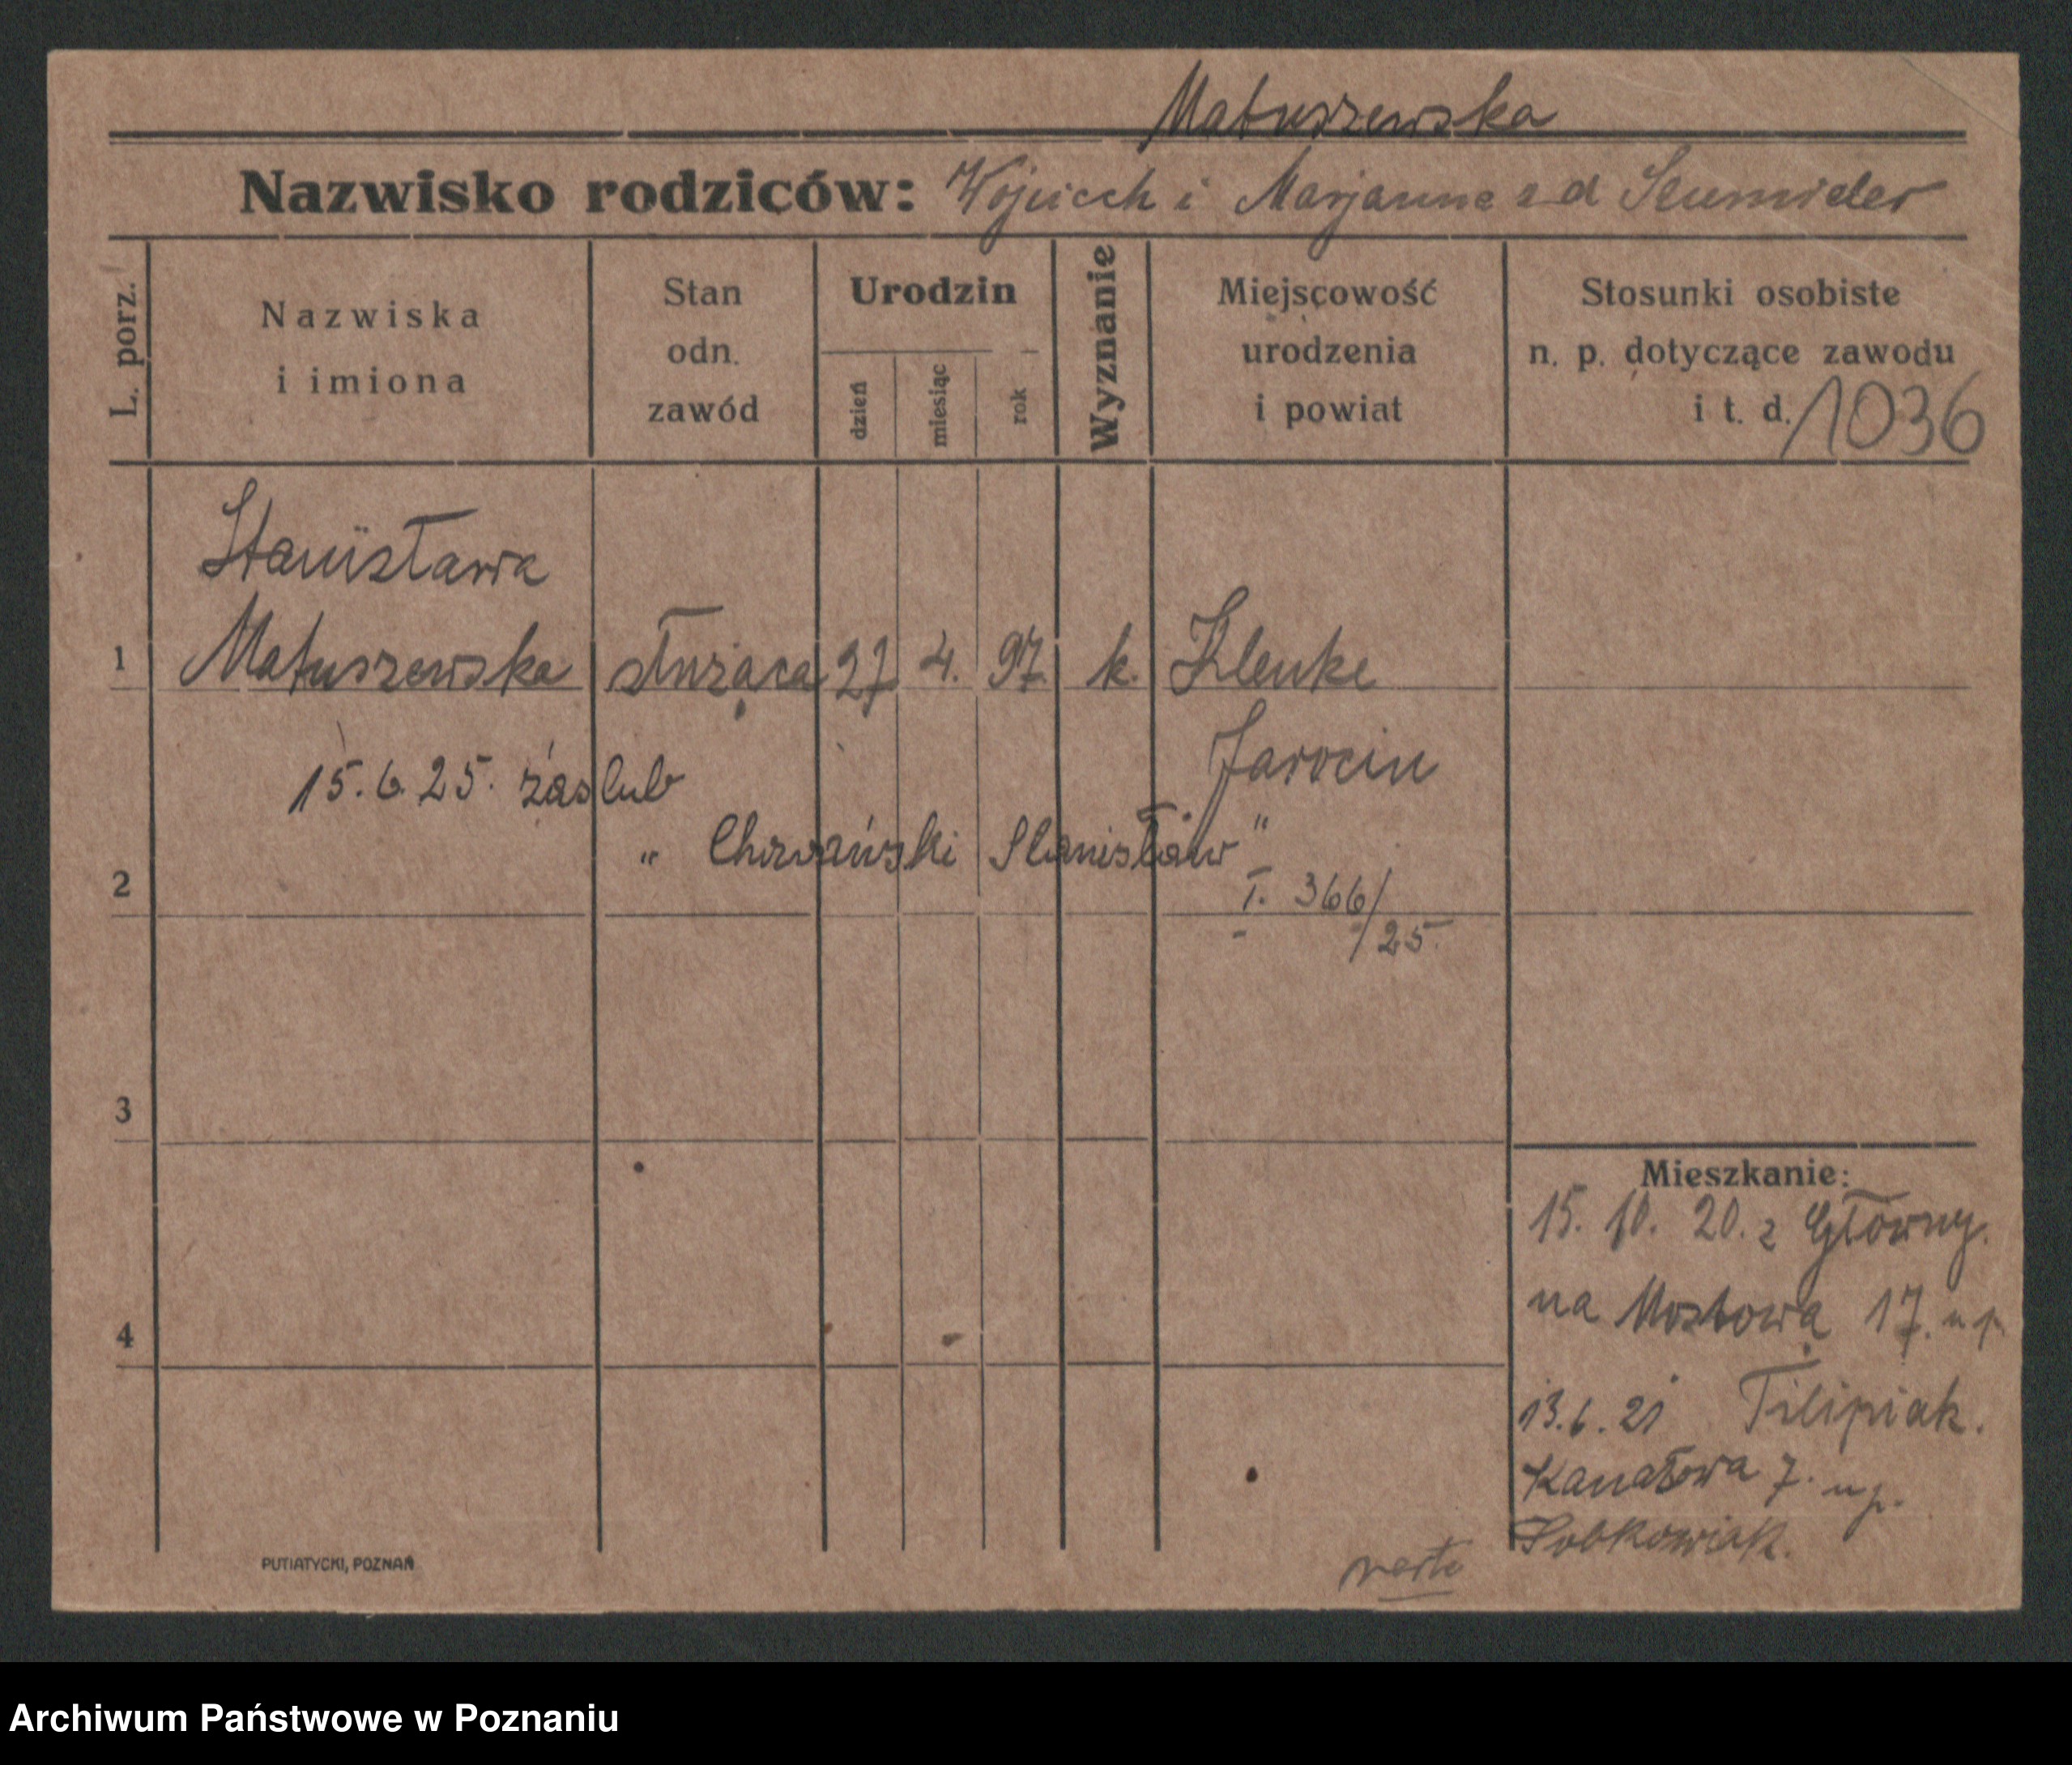 Matuszewska
Nazwisko rodziców: Wojciech i Marjanna z d
L. porz.
Nazwiska
i imiona
Stan
odn.
zawód
Urodzin
dzień
miesiąc
rok
Wyznanie
Miejscowość
urodzenia
i powiat
Stosunki osobiste
n. p. dotyczące zawodu
i t. d. 1036
Stanisława
1 Matuszewska służąca 27 4. 97. k. Klenke
Jarocin
15.6.25. zaślub
„ Chrzański Stanisław "
2
I. 366/25.
3
4
Mieszkanie:
15. 10. 20. z Główny.
na Mostowa 17. u p
13.6.21 Filipiak.
Kanałowa 7. u p.
Sobkowiak.
verte
PUTIATYCKI, POZNAŃ
Archiwum Państwowe w Poznaniu